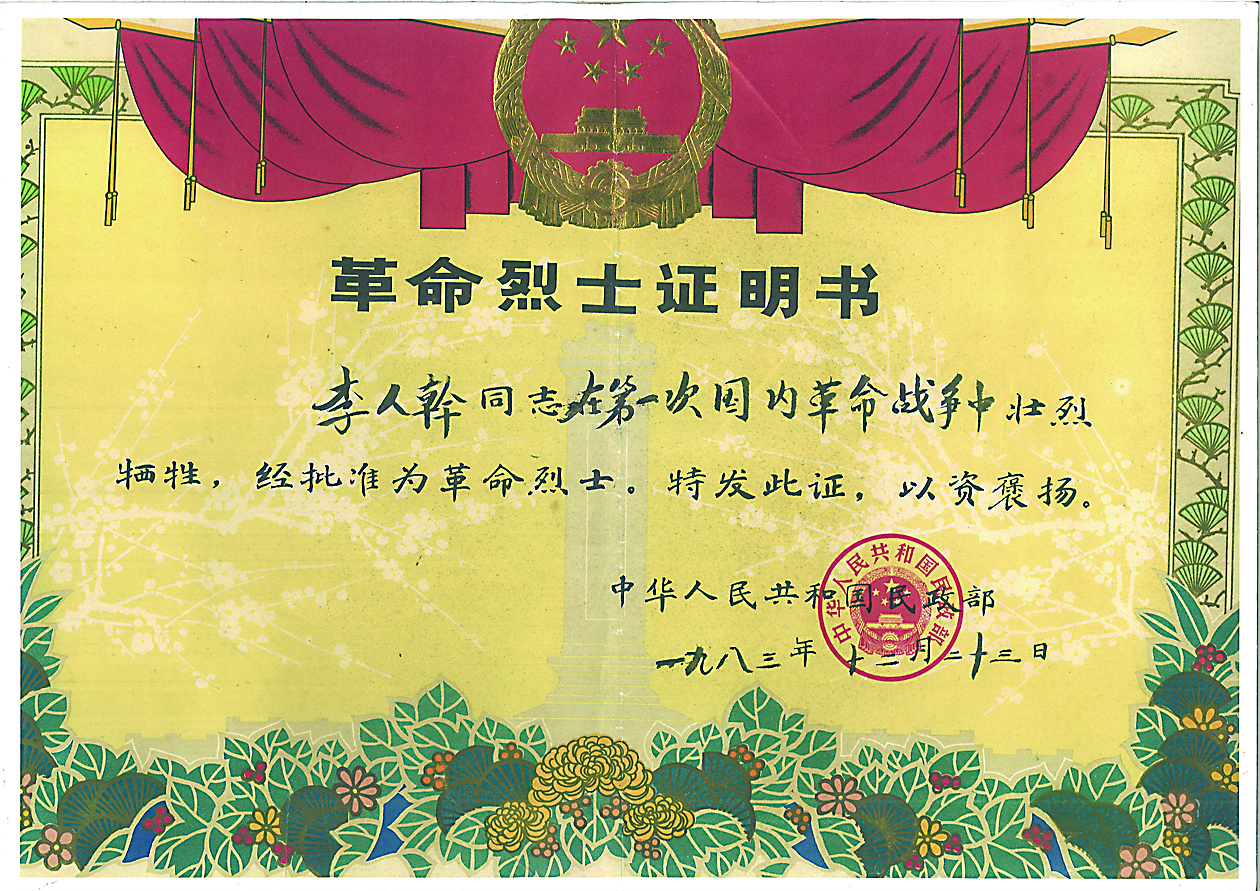 革命烈士证明书
李人幹同志在第一次国内革命战争中壮烈
牺牲，经批准为革命烈士。特发此证，以资褒扬。
中华人民共和国民政部
一九八三年十二月二十三日
中华人民共和国民政部